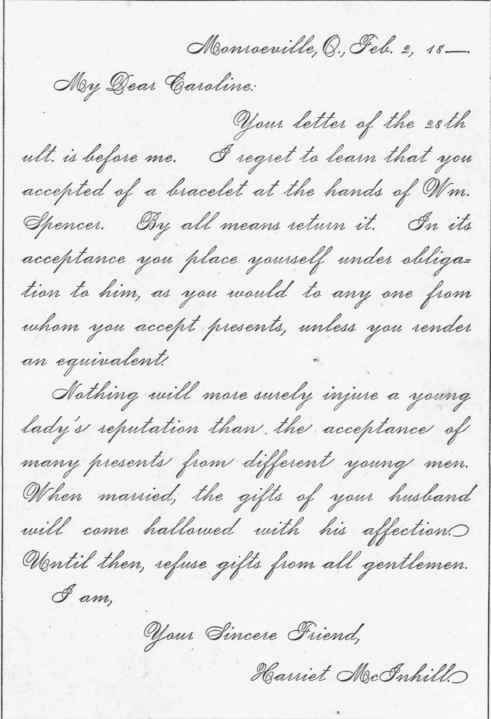 Monroeville, O., Feb. 2, 18—.
My Dear Caroline:
Your letter of the 28th
ult. is before me. I regret to learn that you
accepted of a bracelet at the hands of Wm.
Spencer. By all means return it. In its
acceptance you place yourself under obliga=
tion to him, as you would to any one from
whom you accept presents, unless you render
an equivalent.
Nothing will more surely injure a young
lady's reputation than the acceptance of
many presents from different young men.
When married, the gifts of your husband
will come hallowed with his affection.
Until then, refuse gifts from all gentlemen.
I am,
Your Sincere Friend,
Harriet McInhill.